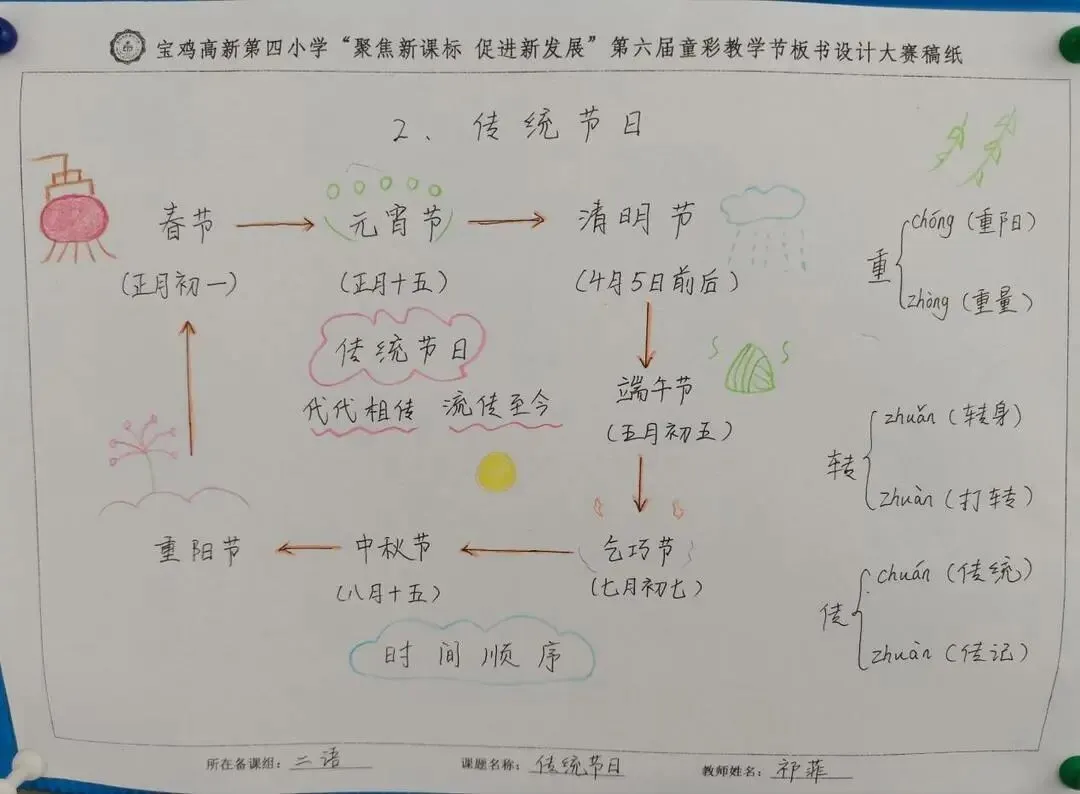 宝鸡高新第四小学“聚焦新课标 促进新发展”第六届童彩教学节板书设计大赛稿纸
2、传统节日
春节
元宵节
清明节
(正月初一)
(正月十五)
(4月5日前后)
传统节日
代代相传 流传至今
端午节
(五月初五)
乞巧节
(七月初七)
中秋节
(八月十五)
重阳节
时间顺序
重
chóng(重阳)
zhòng(重量)
转
zhuǎn(转身)
zhuàn(打转)
传
chuán(传统)
zhuàn(传记)
所在备课组:二语
课题名称:传统节日
教师姓名:祁菲